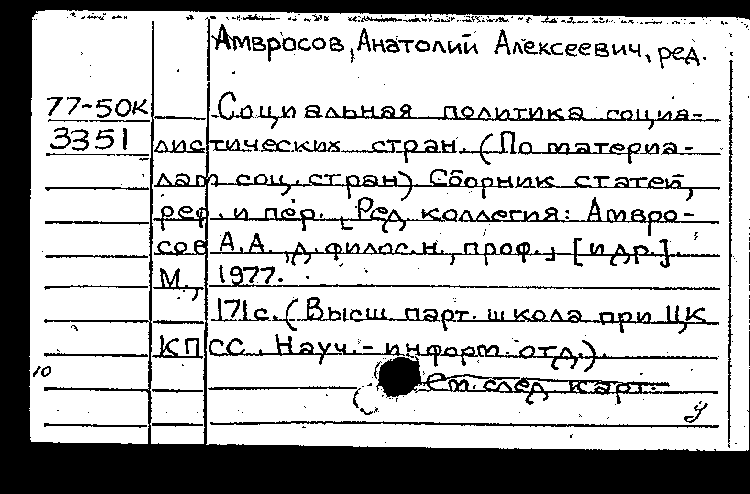 Амвросов, Анатолий Алексеевич, ред.
77-50К Социальная политика социа-
3351 листических стран. (По материа-
лам соц. стран) Сборник статей,
реф. и пер. [Ред. коллегия: Амвро-
сов А.А., д. филос. н., проф.] [и др.].
М., 1977.
171 с. (Высш. парт. школа при ЦК
КПСС. Науч.-информ. отд.).
10
См. след. карт.